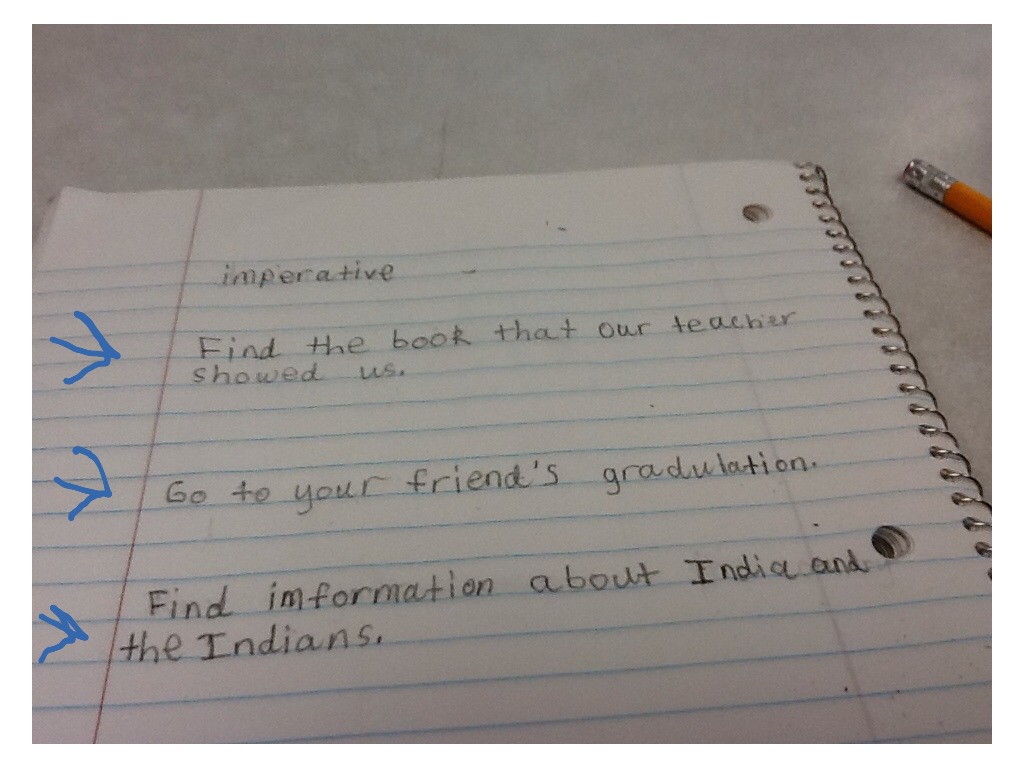 imperative -
Find the book that our teacher
showed us.
Go to your friend's gradulation.
Find imformation about India and
the Indians.